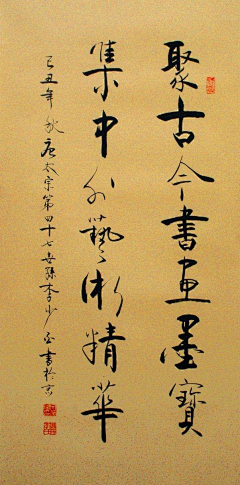 聚古今書畫墨寶
集中外藝術精華
己丑年秋唐太宗第四十七世孫李少白書於京